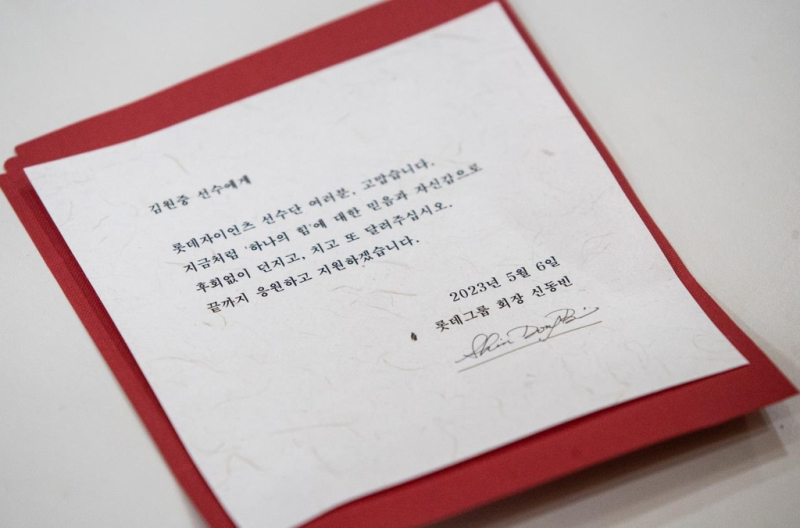 김원중 선수에게
롯데자이언츠 선수단 여러분, 고맙습니다.
지금처럼 '하나의 힘'에 대한 믿음과 자신감으로
후회없이 던지고, 치고 또 달려주십시오.
끝까지 응원하고 지원하겠습니다.
2023년 5월 6일
롯데그룹 회장 신동빈
Shin Dong Bin